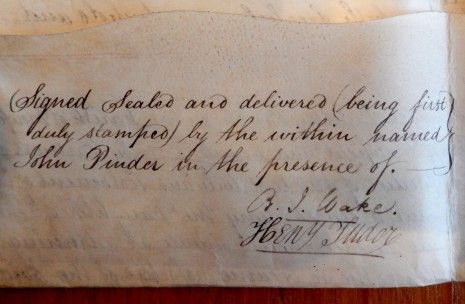 (Signed Sealed and delivered (being first
duly stamped) by the within named
John Pinder in the presence of. —
B. J. Wake.
Henry Tudor